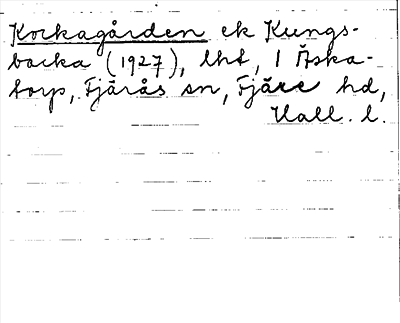 Kockagården ek Kungs-
backa (1927), lht, 1 Åska-
torp, Fjärås sn, Fjäre hd,
Hall. l.